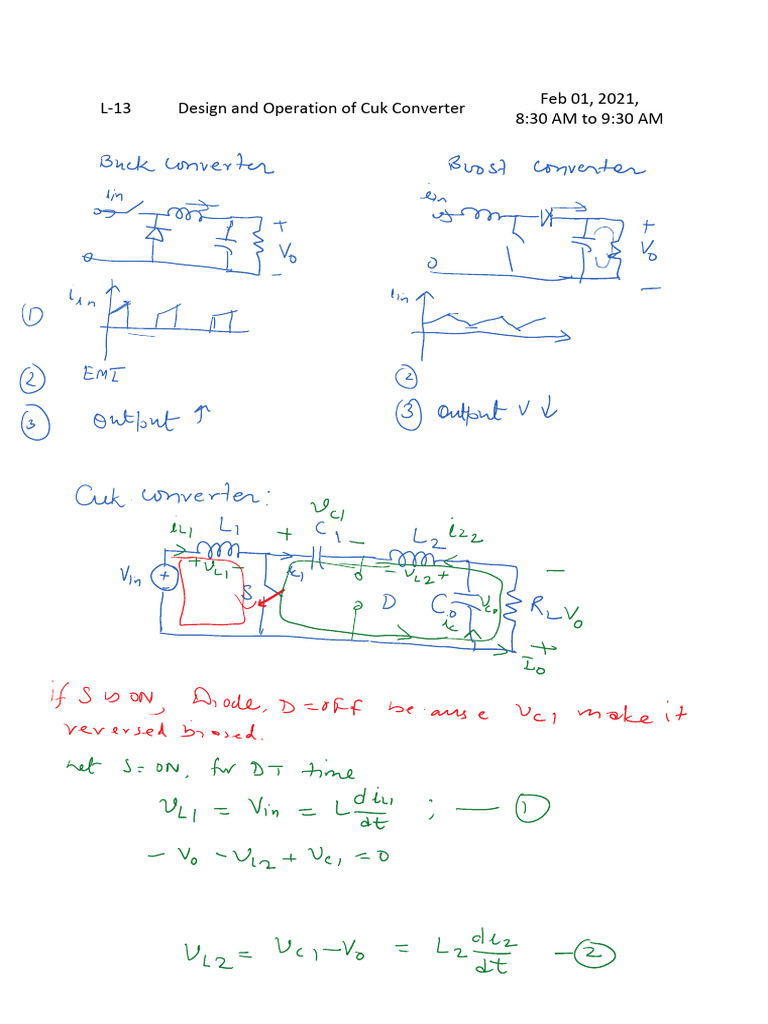 L-13 Design and Operation of Cuk Converter Feb 01, 2021,
8:30 AM to 9:30 AM
Buck converter Boost converter
iin iin
+ +
Vo Vo
- -
① iin iin
② EMI ②
③ Output ↑ ③ Output V ↓
Cuk converter:
iL1 L1 + vC1 C1 - L2 iL2
Vin + + vL1 - S - vL2 + -
D Co vCo RL Vo
ic +
Io
if S is ON, Diode, D=OFF because vC1 make it
reversed biased.
let S=ON, for DT time
vL1 = Vin = L diL1/dt ; — ①
- Vo - vL2 + vC1 = 0
vL2 = vC1 - Vo = L2 diL2/dt — ②